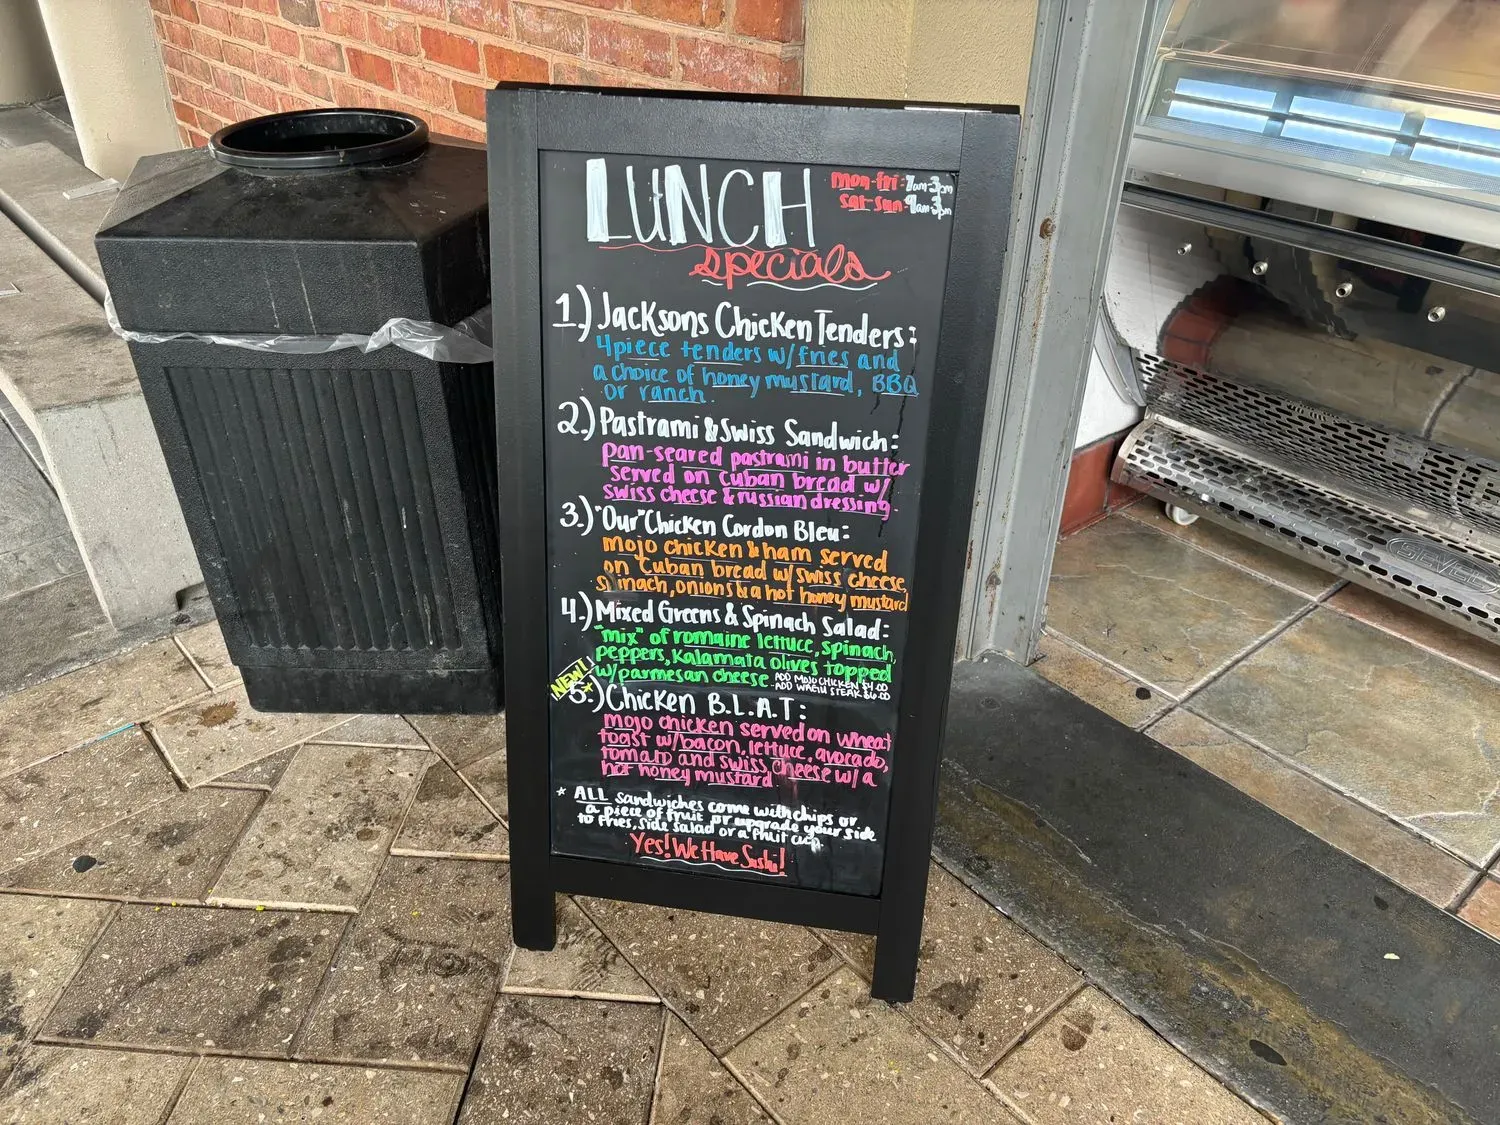 LUNCH
mon-fri: 7am-3pm
sat-sun-9am-3pm
specials
1.) Jacksons Chicken Tenders:
4piece tenders w/fries and
a choice of honey mustard, BBQ
or ranch.
2.) Pastrami & Swiss Sandwich:
pan-seared pastrami in butter
served on cuban bread w/
swiss cheese & russian dressing.
3.) "Our" Chicken Cordon Bleu:
mojo chicken & ham served
on cuban bread w/swiss cheese,
spinach, onions & a hot honey mustard
4.) Mixed Greens & Spinach Salad:
"mix" of romaine lettuce, spinach,
peppers, Kalamata olives topped
w/parmesan cheese
-ADD MOJO CHICKEN $4.00
-ADD WAGU STEAK $6.00
NEW!
5.) Chicken B.L.A.T:
mojo chicken served on wheat
toast w/bacon, lettuce, avocado,
tomato and swiss cheese w/ a
hot honey mustard
* ALL Sandwiches come with chips or
a piece of fruit or upgrade your side
to fries, side salad or a fruit cup.
Yes! We Have Sushi!